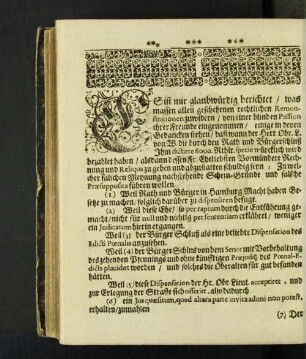 ES ist mir glaubwürdig berichtet / was
massen allen geschehenen rechtlichen Remon-
strationen zuwidern / von einer blinden Passion
ihrer Freunde eingenommen / einige in denen
Gedancken stehen / daß wann der Herr Obr. L.
von W. die durch den Rath und Bürgerschluß
Ihm dictirte 6000. Rthlr. specie würcklich wird
bezahlet haben / alsdann dessen Fr. Eheliebsten Vormündere Rech-
nung und Reliqua zu geben und abzustatten schuldig seyn: Zu wel-
cher falschen Meynung nachstehende Schein-Gründe und falsche
Præsupposita führen wollen
(1) Weil Rath und Bürger in Hamburg Macht haben Ge-
setze zu machen / folglich darüber zu dispensiren befugt.
(2) Weil diese Ehe / so per raptum durch die Entführung ge-
macht / nicht für null und nichtig per sententiam erkläret / weniger
ein Judicatum hierin ergangen.
Weil (3) der Bürger Schluß als eine beliebte Dispensation des
Edicti Poenalis anzusehen.
Weil (4) der Bürger Schluß von dem Senat mit Vorbehaltung
des zehenden Pfennings und ohne künfftigen Præjudiz des Poenal-E-
dicts placidirt werden / und solches die Oberalten für gut befunden
hätten.
Weil (5) diese Dispensation der Hr. Obr. Lieut. acceptiret, und
zur Erlegung der Straffe sich offerirt, also dadurch
(6) ein Jus quæsitum, quod altera parte invita adimi non potest,
erhalten / zumahlen
(7) Der